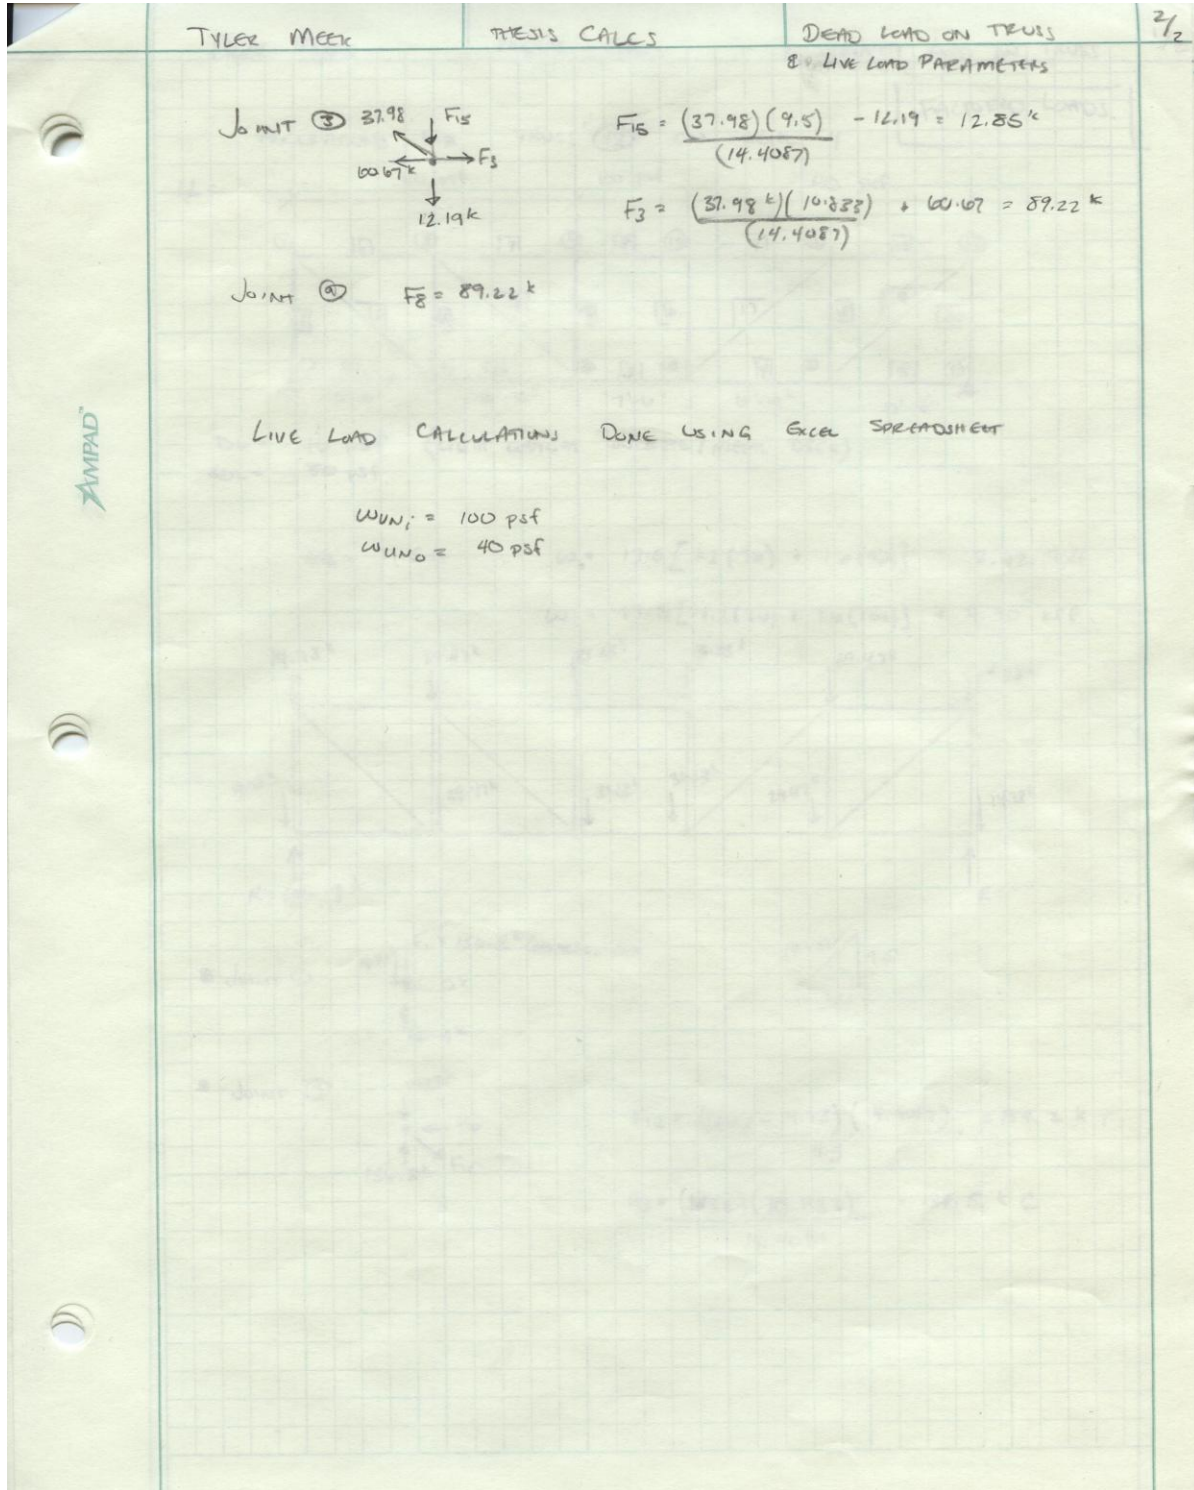 TYLER MEEK THESIS CALCS DEAD LOAD ON TRUSS 2/2
& LIVE LOAD PARAMETERS
JOINT ③ 37.98 F15
60.67k F3
12.19k
F15 = (37.98)(9.5) / (14.4087) - 12.19 = 12.85k
F3 = (37.98k)(10.833) / (14.4087) + 60.67 = 89.22k
JOINT ⑨ F8 = 89.22k
LIVE LOAD CALCULATIONS DONE USING EXCEL SPREADSHEET
AMPAD™
WUNi = 100 psf
WUNo = 40 psf